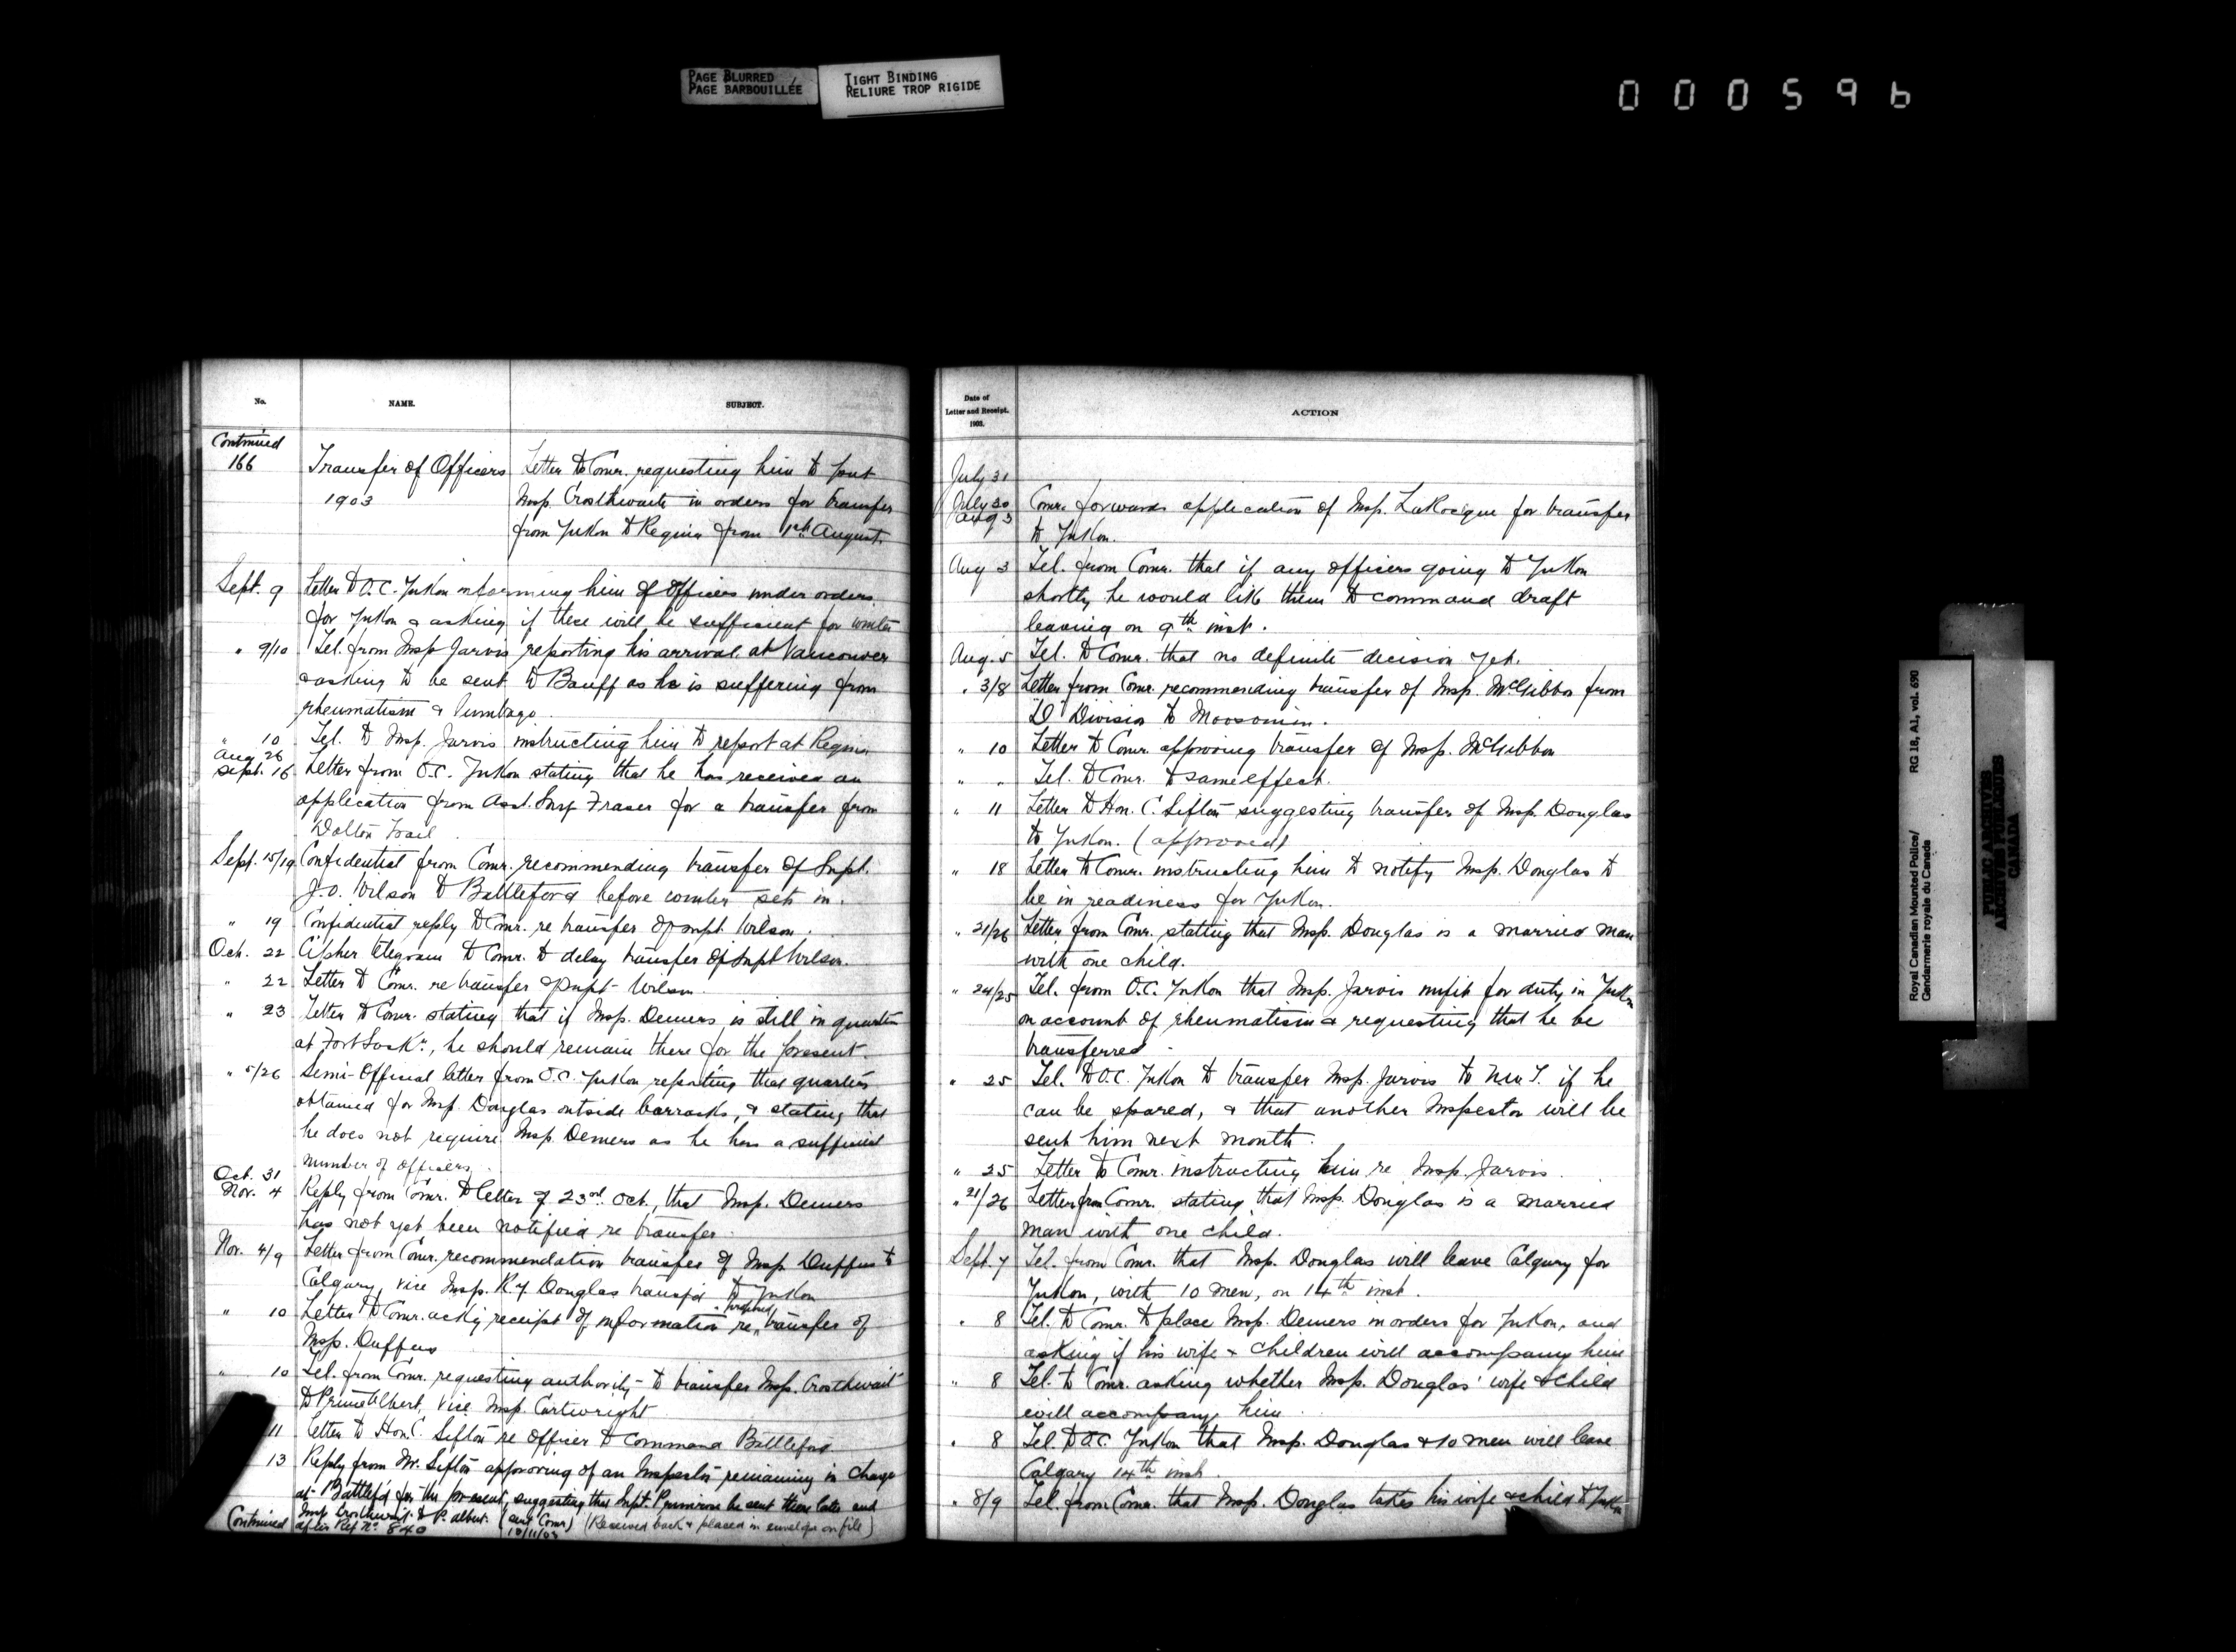 PAGE BLURRED
PAGE BARBOUILLÉE
TIGHT BINDING
RELIURE TROP RIGIDE
000596
No. NAME. SUBJECT.
Continued
166 Transfer of Officers Letter to Comr. requesting him to put
1903 Insp. Crosthwaite in orders for transfer
from Yukon to Regina from 1st August.
Sept. 9 Letter to O.C. Yukon informing him of Officers under orders
for Yukon & asking if these will be sufficient for winter
" 9/10 Tel. from Insp Jarvis reporting his arrival at Vancouver
& asking to be sent to Banff as he is suffering from
rheumatism & lumbago.
" 10 Tel. to Insp. Jarvis instructing him to report at Regina
Aug 26
Sept. 16 Letter from O.C. Yukon stating that he has received an
application from Asst. Surg Fraser for a transfer from
Dalton Trail.
Sept. 15/19 Confidential from Comr. recommending transfer of Supt.
J.O. Wilson to Battleford before winter sets in.
" 19 Confidential reply to Comr. re transfer of Supt. Wilson.
Oct. 22 Cipher telegram to Comr. to delay transfer of Supt Wilson.
" 22 Letter to Comr. re transfer of Supt Wilson
" 23 Letter to Comr. stating that if Insp. Demers is still in quarters
at Fort Sask'n, he should remain there for the present.
" 5/26 Semi-Official letter from O.C. Yukon reporting that quarters
obtained for Insp. Douglas outside barracks, & stating that
he does not require Insp. Demers as he has a sufficient
number of officers.
Oct. 31
Nov. 4 Reply from Comr. to letter of 23rd Oct., that Insp. Demers
has not yet been notified re transfer.
Nov. 4/9 Letter from Comr. recommendation transfer of Insp Duffus to
Calgary, vice Insp. R.Y. Douglas transf'd to Yukon
" 10 Letter to Comr. ack'g receipt of information re proposed transfer of
Insp. Duffus
" 10 Tel. from Comr. requesting authority to transfer Insp. Crosthwait
to Prince Albert, vice Insp. Cartwright
11 Letter to Hon. C. Sifton re Officer to command Battleford
13 Reply from Mr. Sifton approving of an Inspector remaining in charge
at Battlef'd for the present, suggesting that Supt. Primrose be sent there later and
Insp Crosthwait to P. Albert. (sent Comr) (Received back & placed in envelope on file)
Continued after Ref No. 840 10/11/03
Date of
Letter and Receipt.
1903.
ACTION
July 31
July 30
Aug 3 Comr. forwards application of Insp. LaRocque for transfer
to Yukon.
Aug 3 Tel. from Comr. that if any officers going to Yukon
shortly he would like them to command draft
leaving on 9th inst.
Aug. 5 Tel. to Comr. that no definite decision yet.
" 3/8 Letter from Comr. recommending transfer of Insp. McGibbon from
"D" Division to Moosomin.
" 10 Letter to Comr. approving transfer of Insp. McGibbon
" " Tel. to Comr. to same effect.
" 11 Letter to Hon. C. Sifton suggesting transfer of Insp. Douglas
to Yukon. (approved)
" 18 Letter to Comr. instructing him to notify Insp. Douglas to
be in readiness for Yukon.
" 21/26 Letter from Comr. stating that Insp. Douglas is a married man
with one child.
" 24/25 Tel. from O.C. Yukon that Insp. Jarvis unfit for duty in Yukon
on account of rheumatism & requesting that he be
transferred.
" 25 Tel. to O.C. Yukon to transfer Insp. Jarvis to N.W.T. if he
can be spared, & that another Inspector will be
sent him next month.
" 25 Letter to Comr. instructing him re Insp. Jarvis.
" 21/26 Letter from Comr. stating that Insp. Douglas is a married
man with one child.
Sept. 7 Tel. from Comr. that Insp. Douglas will leave Calgary for
Yukon, with 10 men, on 14th inst.
" 8 Tel. to Comr. to place Insp. Demers in orders for Yukon, and
asking if his wife & children will accompany him
" 8 Tel. to Comr. asking whether Insp. Douglas' wife & child
will accompany him.
" 8 Tel. to O.C. Yukon that Insp. Douglas & 10 men will leave
Calgary 14th inst.
" 8/9 Tel. from Comr. that Insp. Douglas takes his wife & child to Yukon
Royal Canadian Mounted Police/
Gendarmerie royale du Canada
RG 18, A1, vol. 690
PUBLIC ARCHIVES
ARCHIVES PUBLIQUES
CANADA